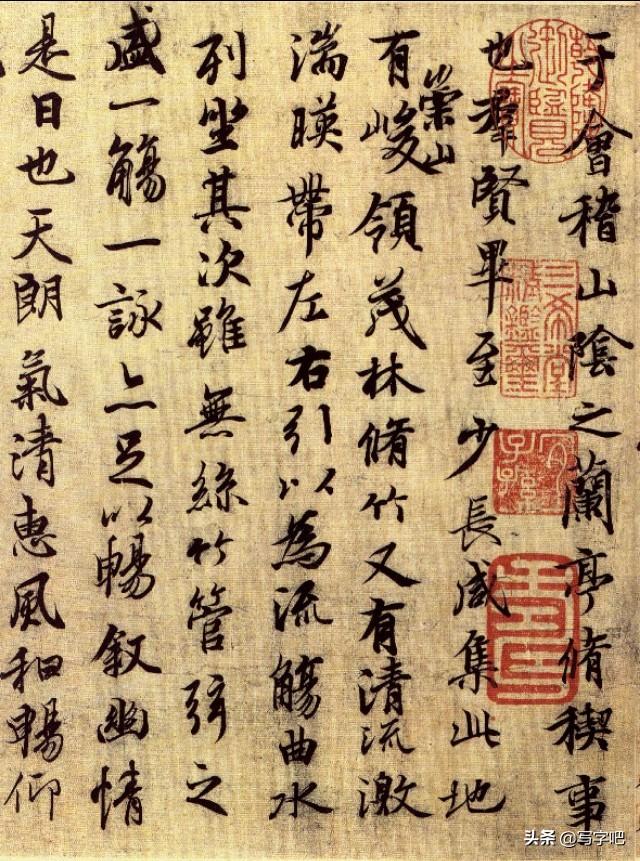 于會稽山陰之蘭亭脩稧事
也羣賢畢至少長咸集此地
有崇山峻領茂林脩竹又有清流激
湍暎帶左右引以為流觴曲水
列坐其次雖無絲竹管弦之
盛一觴一詠亦足以暢叙幽情
是日也天朗氣清惠風和暢仰
三希堂精鑑璽
宜子孫
头条 @写字吧